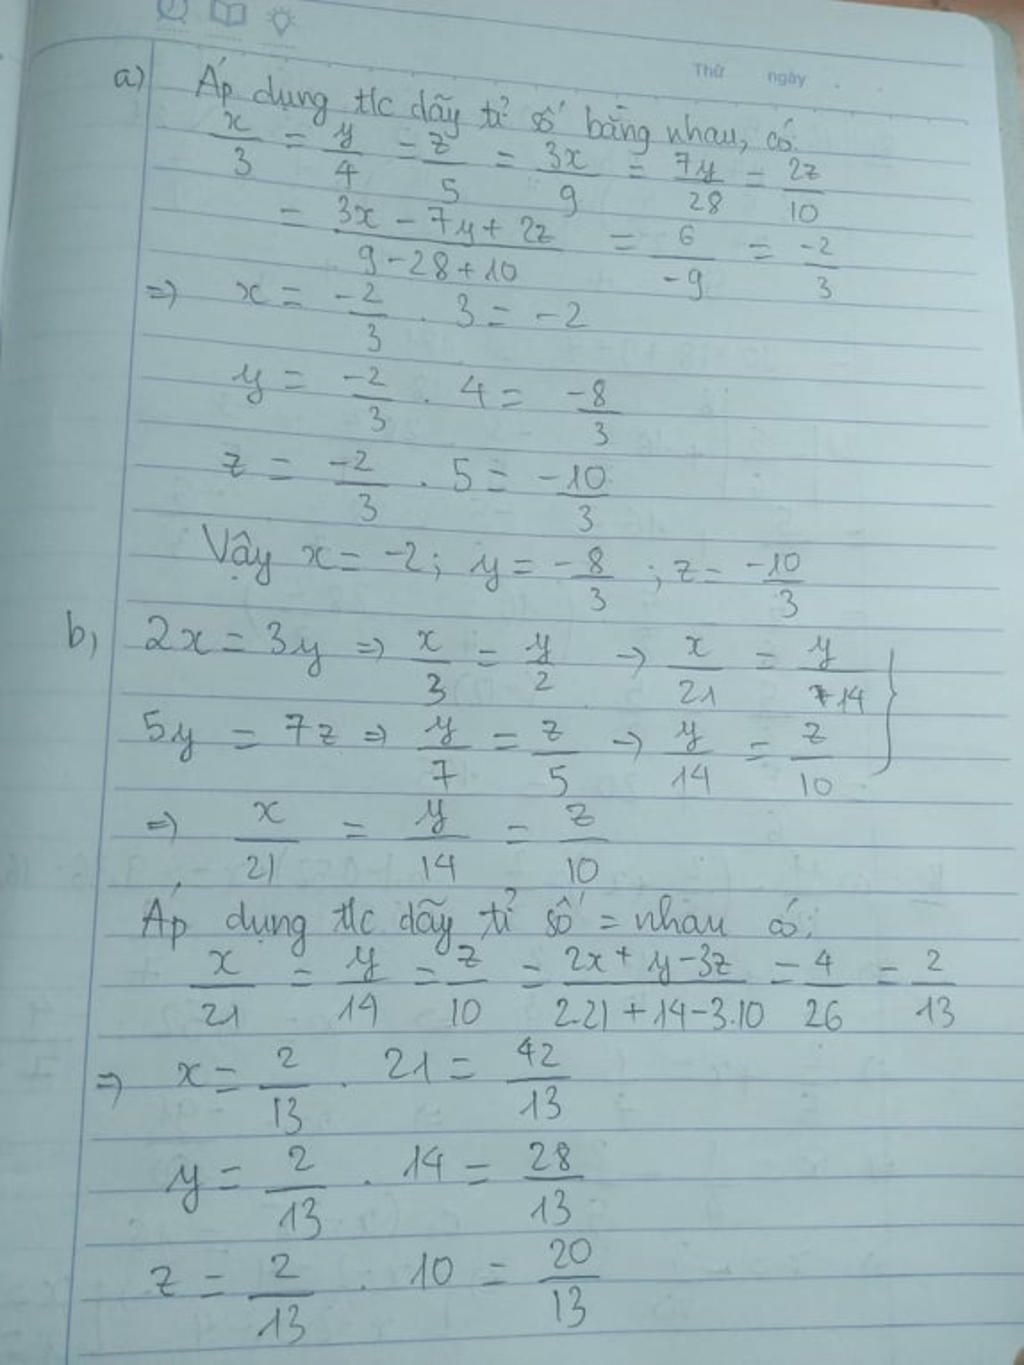 Thứ ngày
a) Áp dụng t/c dãy tỉ số bằng nhau, có
x/3 = y/4 = z/5 = 3x/9 = 7y/28 = 2z/10
= (3x - 7y + 2z)/(9 - 28 + 10) = 6/-9 = -2/3
=> x = -2/3 . 3 = -2
y = -2/3 . 4 = -8/3
z = -2/3 . 5 = -10/3
Vậy x = -2; y = -8/3; z = -10/3
b, 2x = 3y => x/3 = y/2 → x/21 = y/14 }
5y = 7z => y/7 = z/5 → y/14 = z/10
=> x/21 = y/14 = z/10
Áp dụng t/c dãy tỉ số = nhau có:
x/21 = y/14 = z/10 = (2x + y - 3z)/(2.21 + 14 - 3.10) = 4/26 = 2/13
=> x = 2/13 . 21 = 42/13
y = 2/13 . 14 = 28/13
z = 2/13 . 10 = 20/13